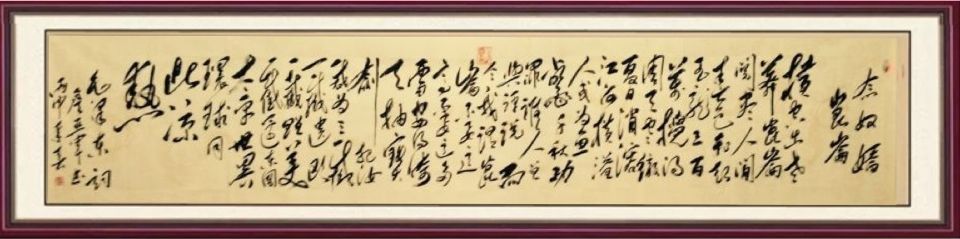 念奴娇
崑崙
横空出世
莽崑崙
阅尽人间
春色飞起
玉龙三百
万搅得
周天寒彻
夏日消溶
江河横溢
人或为鱼
鳖千秋功
罪谁人曾
与评说而
今我谓崑
崙不要这
高不要这多
雪安得倚
天抽宝
剑把汝
裁为三截
一截遗欧
一截赠美
一截还东国
太平世界
环球同
此凉
热
毛泽东词